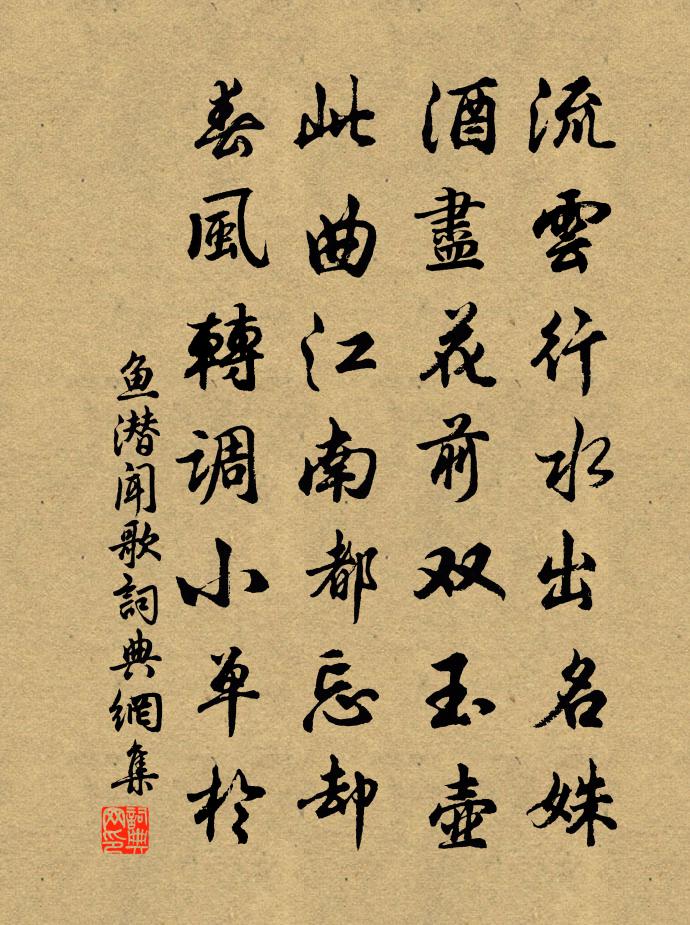 流雲行水出名姝
酒盡花前双玉壺
此曲江南都忘却
春風轉調小单於
鱼潜闻歌詞典網集
詞典網印